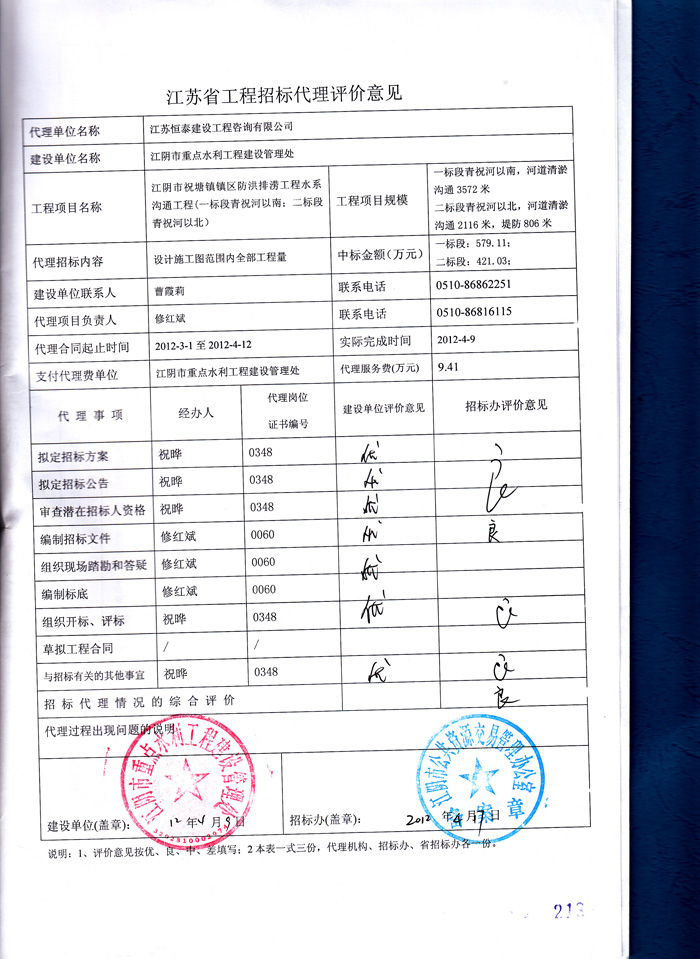 江苏省工程招标代理评价意见
代理单位名称 江苏恒泰建设工程咨询有限公司
建设单位名称 江阴市重点水利工程建设管理处
工程项目名称 江阴市祝塘镇镇区防洪排涝工程水系
沟通工程(一标段青祝河以南；二标段
青祝河以北)
工程项目规模 一标段青祝河以南，河道清淤
沟通 3572 米
二标段青祝河以北，河道清淤
沟通 2116 米，堤防 806 米
代理招标内容 设计施工图范围内全部工程量 中标金额（万元） 一标段：579.11；
二标段：421.03；
建设单位联系人 曹霞莉 联系电话 0510-86862251
代理项目负责人 修红斌 联系电话 0510-86816115
代理合同起止时间 2012-3-1 至 2012-4-12 实际完成时间 2012-4-9
支付代理费单位 江阴市重点水利工程建设管理处 代理服务费(万元) 9.41
代理事项 经办人 代理岗位
证书编号 建设单位评价意见 招标办评价意见
拟定招标方案 祝晔 0348 优
拟定招标公告 祝晔 0348 优
审查潜在招标人资格 祝晔 0348 优
编制招标文件 修红斌 0060 优 良
组织现场踏勘和答疑 修红斌 0060 优
编制标底 修红斌 0060
组织开标、评标 祝晔 0348 优
草拟工程合同 / /
与招标有关的其他事宜 祝晔 0348 优
招标代理情况的综合评价 良
代理过程出现问题的说明
江阴市重点水利工程建设管理处
江阴市公共资源交易管理办公室
备案章
建设单位(盖章): 12 年 4 月 9 日 招标办(盖章): 2012 年 4 月 日
说明：1、评价意见按优、良、中、差填写；2 本表一式三份，代理机构、招标办、省招标办各一份。
213